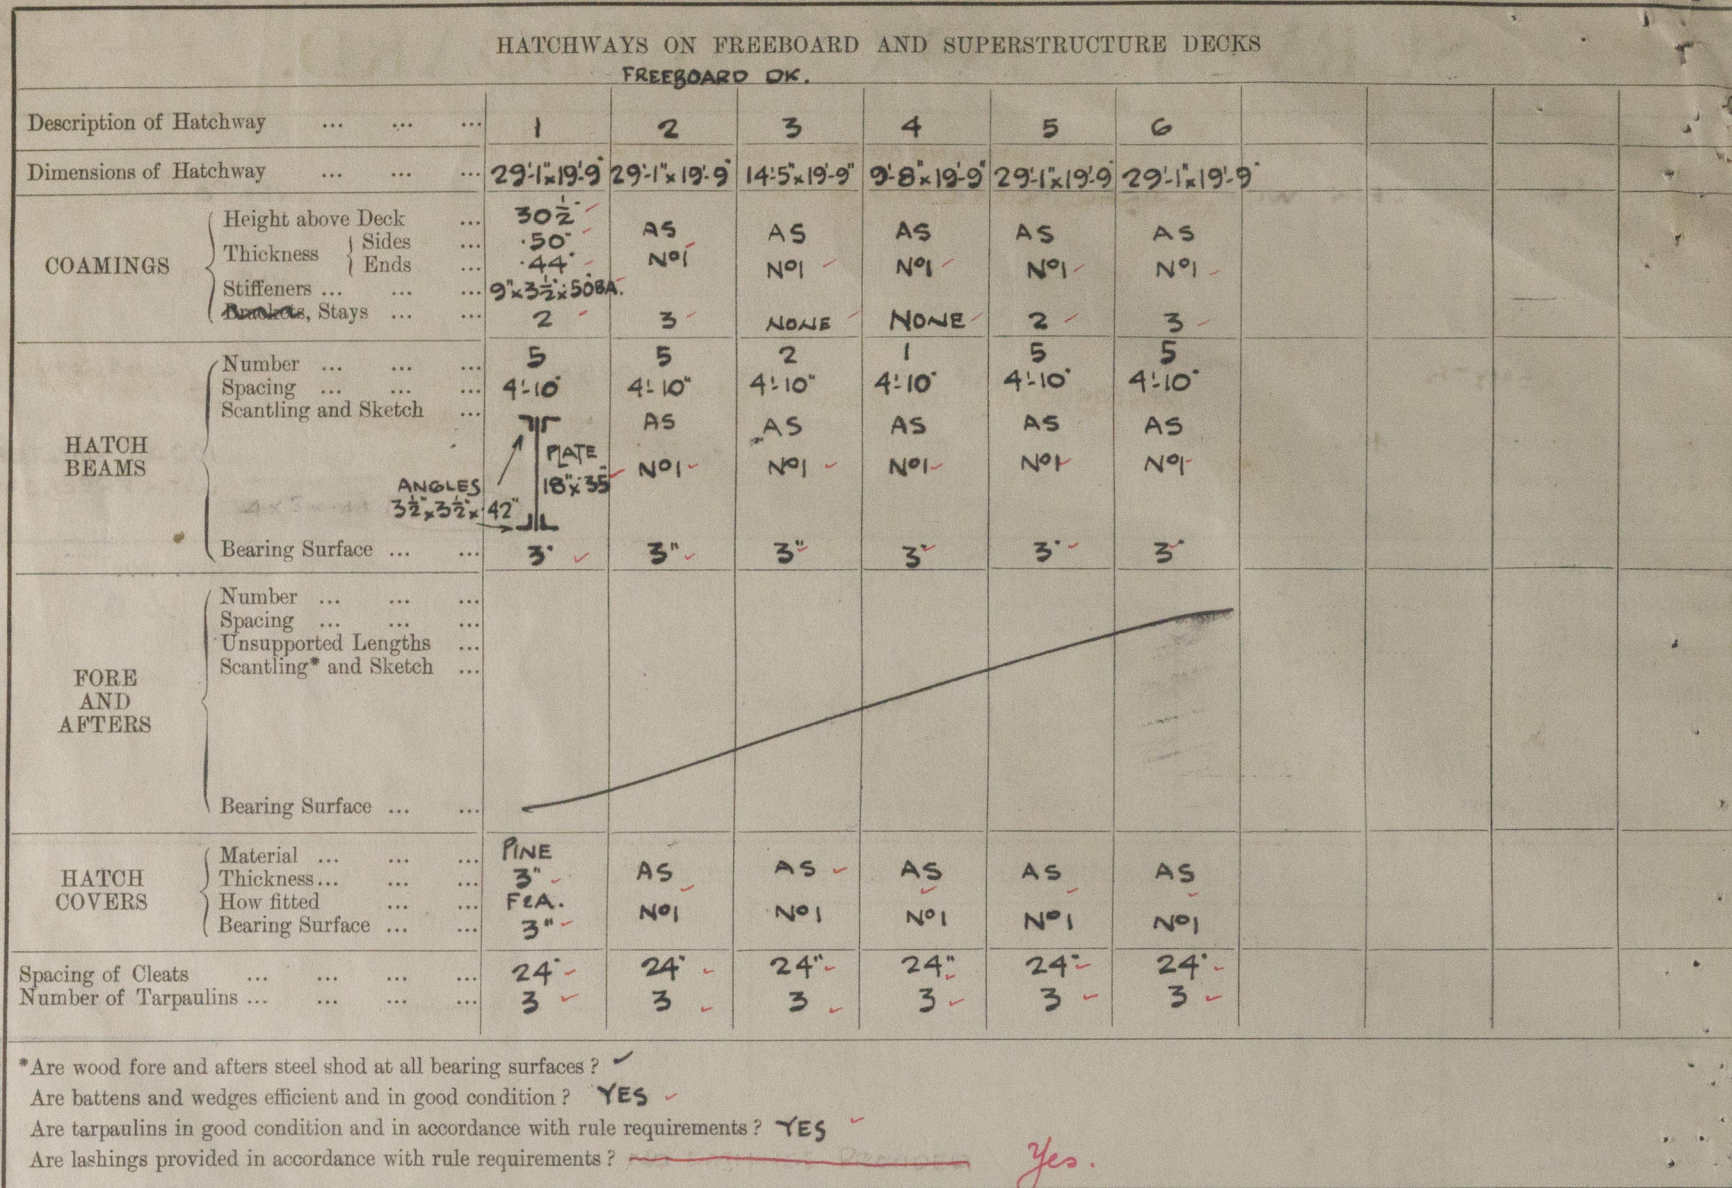 HATCHWAYS ON FREEBOARD AND SUPERSTRUCTURE DECKS
FREEBOARD DK.
Description of Hatchway ... ... ... 1 2 3 4 5 6
Dimensions of Hatchway ... ... ... 29'-1"x19'-9" 29'-1"x19'-9" 14'-5"x19'-9" 9'-8"x19'-9" 29'-1"x19'-9" 29'-1"x19'-9"
COAMINGS
Height above Deck ... 30½"
Thickness Sides ... .50" AS AS AS AS AS
Ends ... .44" No1 No1 No1 No1 No1
Stiffeners ... ... ... 9"x3½"x.50 BA.
Brackets, Stays ... ... 2 3 NONE NONE 2 3
HATCH BEAMS
Number ... ... ... 5 5 2 1 5 5
Spacing ... ... ... 4'-10" 4'-10" 4'-10" 4'-10" 4'-10" 4'-10"
Scantling and Sketch ... AS AS AS AS AS
PLATE 18"x.35" No1 No1 No1 No1 No1
ANGLES 3½"x3½"x.42"
Bearing Surface ... ... 3" 3" 3" 3" 3" 3"
FORE AND AFTERS
Number ... ... ...
Spacing ... ... ...
Unsupported Lengths ...
Scantling* and Sketch ...
Bearing Surface ... ...
HATCH COVERS
Material ... ... ... PINE
Thickness... ... ... 3" AS AS AS AS AS
How fitted ... ... F&A. No1 No1 No1 No1 No1
Bearing Surface ... ... 3"
Spacing of Cleats ... ... ... ... 24" 24" 24" 24" 24" 24"
Number of Tarpaulins ... ... ... ... 3 3 3 3 3 3
*Are wood fore and afters steel shod at all bearing surfaces ? ✓
Are battens and wedges efficient and in good condition ? YES
Are tarpaulins in good condition and in accordance with rule requirements ? YES
Are lashings provided in accordance with rule requirements ? Yes.